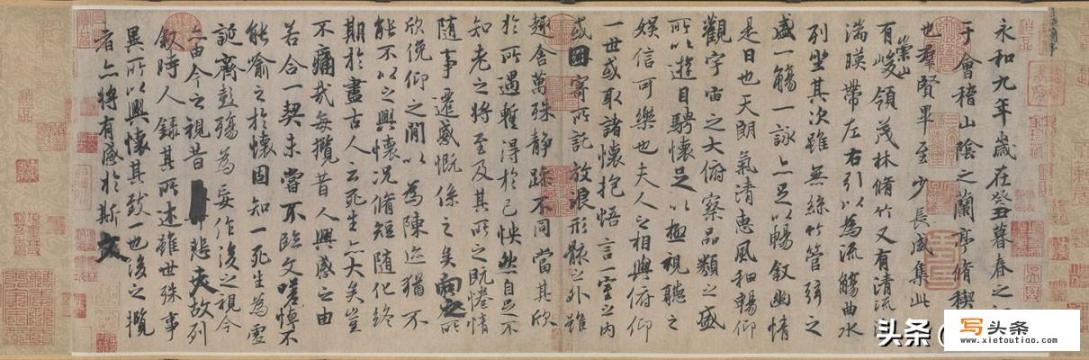 永和九年歲在癸丑暮春之
于會稽山陰之蘭亭脩稧
也群賢畢至少長咸集此
有崇山峻領茂林脩竹又有清流
湍暎帶左右引以為流觴曲水
列坐其次雖無絲竹管弦之
盛一觴一詠亦足以暢敘幽情
是日也天朗氣清惠風和暢仰
觀宇宙之大俯察品類之盛
所以遊目騁懷足以極視聽之
娛信可樂也夫人之相與俯仰
一世或取諸懷抱悟言一室之內
或因寄所託放浪形骸之外雖
趣舍萬殊靜躁不同當其欣
於所遇蹔得於己怏然自足不
知老之將至及其所之既惓情
隨事遷感慨係之矣向之所
欣俛仰之閒以為陳迹猶不
能不以之興懷況脩短隨化終
期於盡古人云死生亦大矣豈
不痛哉每攬昔人興感之由
若合一契未嘗不臨文嗟悼不
能喻之於懷固知一死生為虛
誕齊彭殤為妄作後之視今
亦由今之視昔悲夫故列
敘時人錄其所述雖世殊事
異所以興懷其致一也後之攬
者亦將有感於斯文
头条
写头条
www.xietoutiao.com